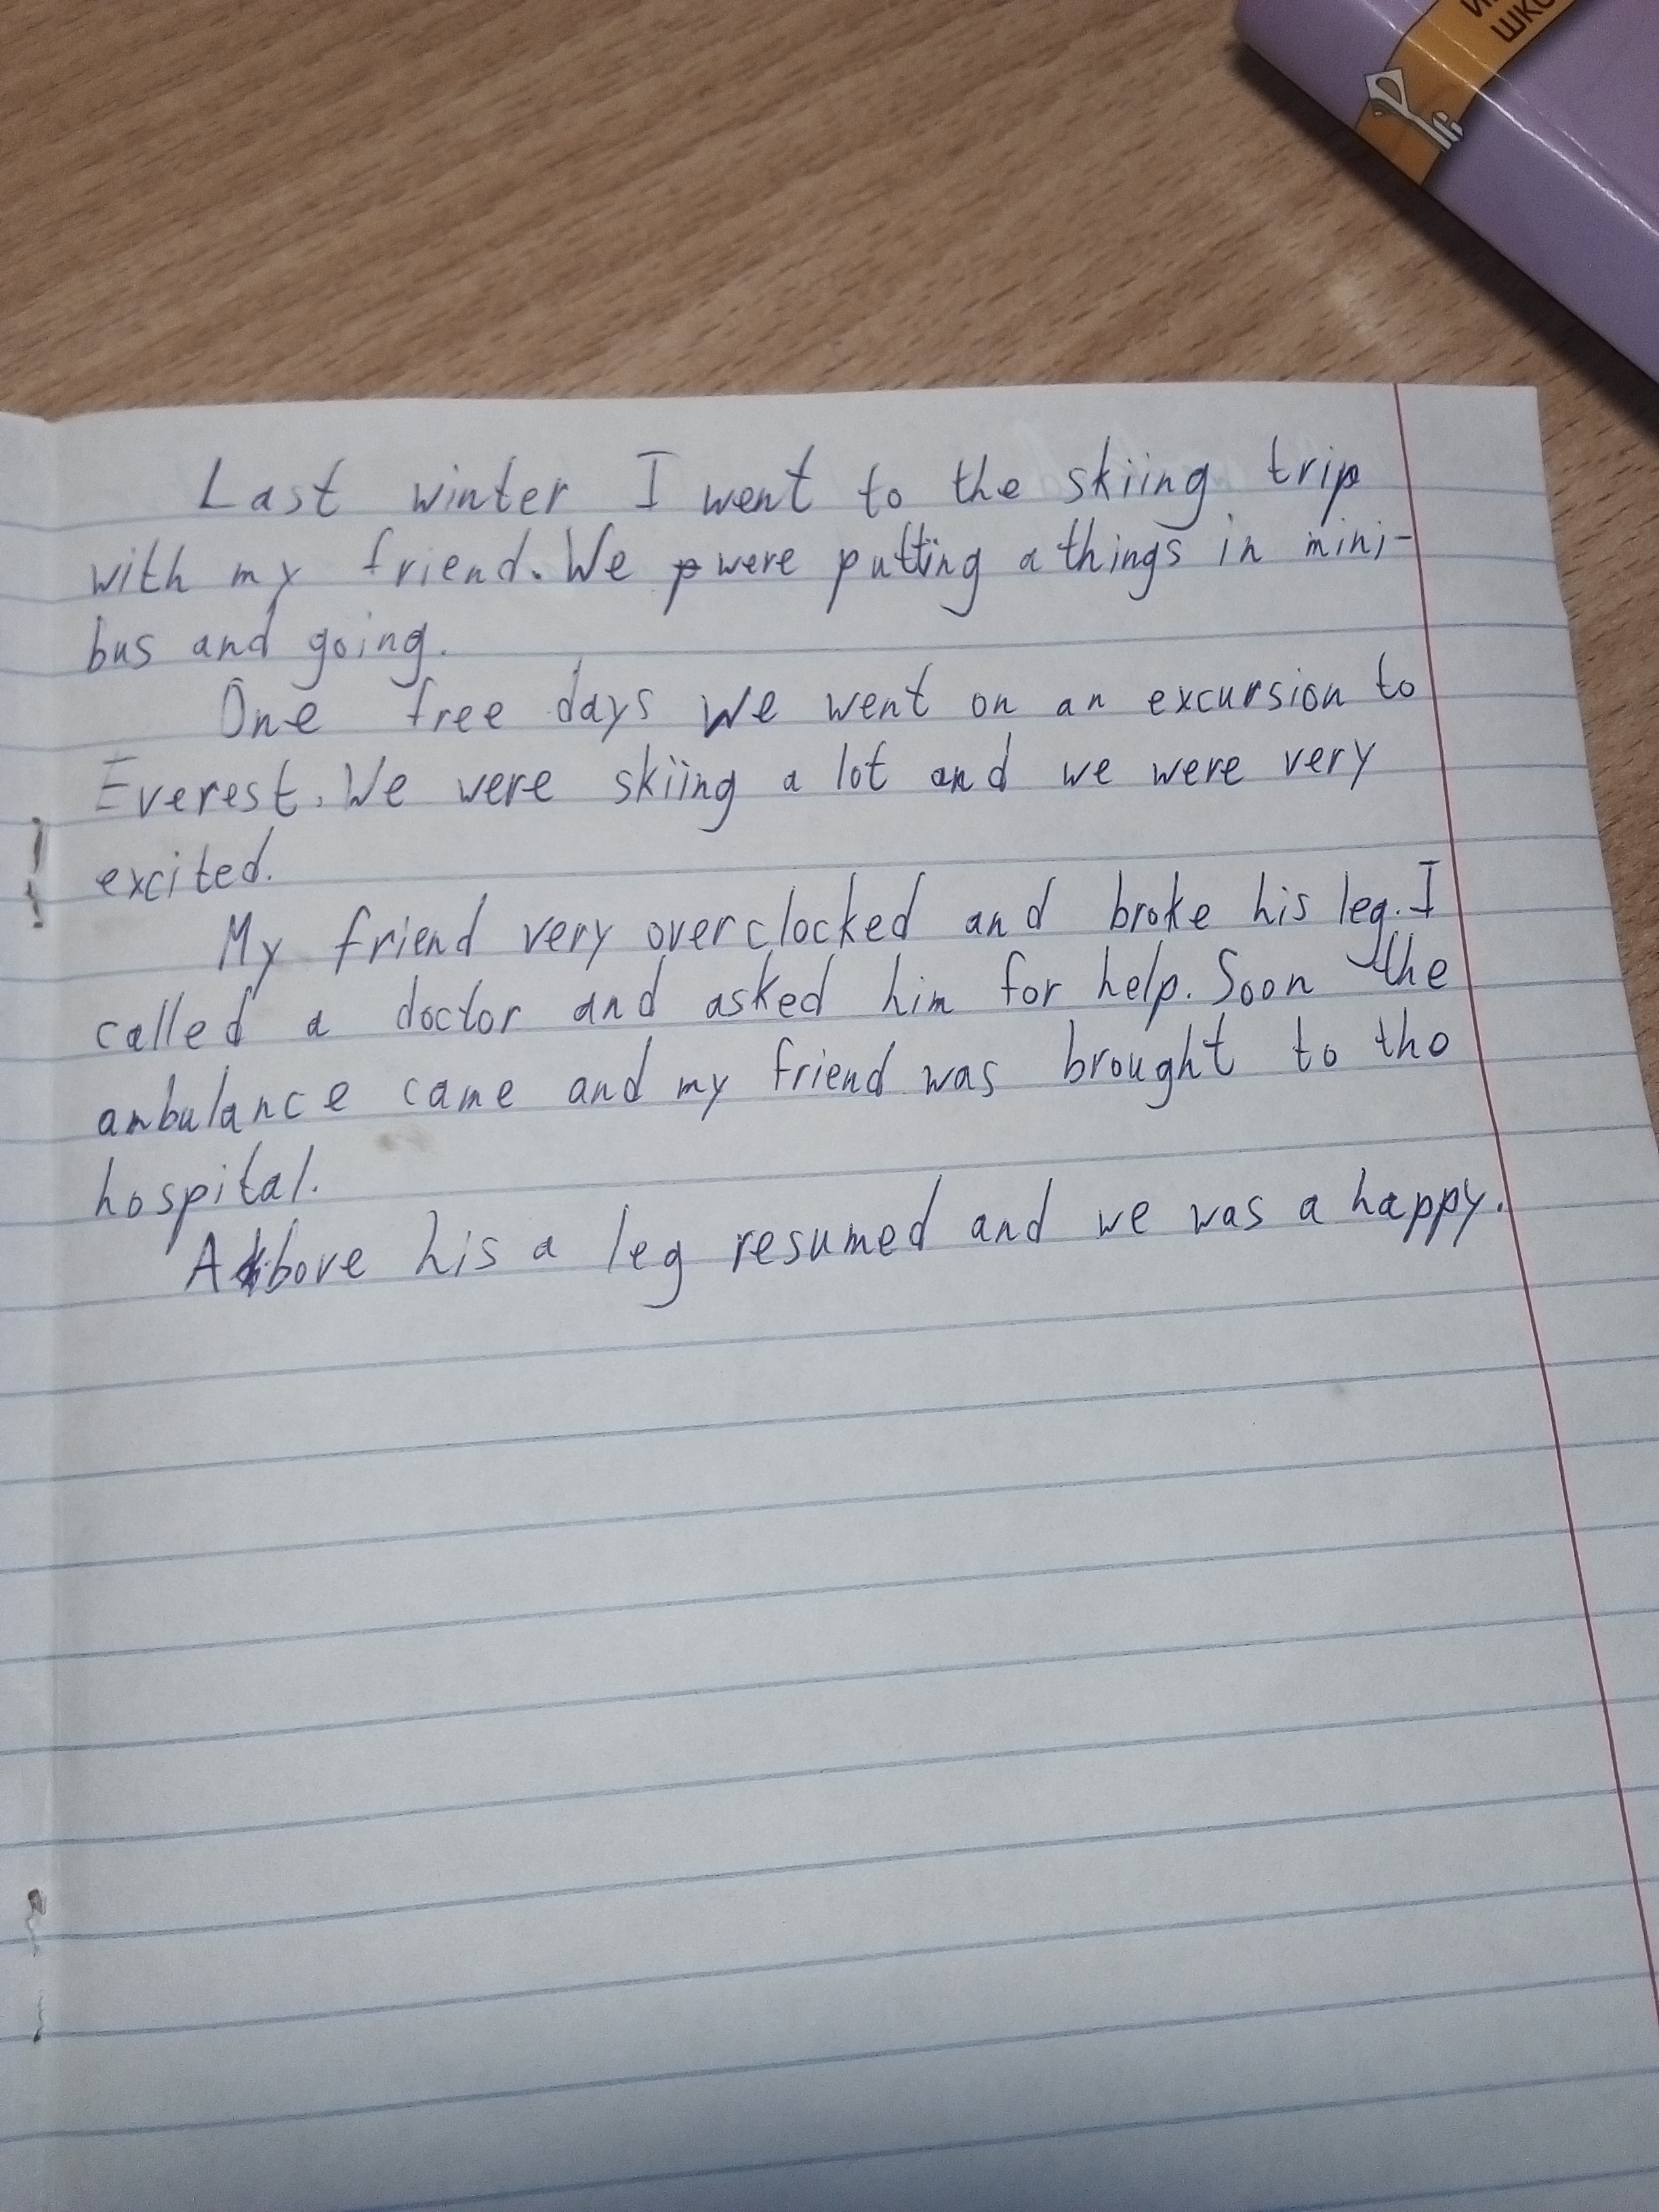 ШКО
Last winter I went to the skiing trip
with my friend. We were putting a things in mini-
bus and going.
One free days we went on an excursion to
Everest. We were skiing a lot and we were very
excited.
My friend very overclocked and broke his leg. I
called a doctor and asked him for help. Soon the
ambulance came and my friend was brought to tho
hospital.
Above his a leg resumed and we was a happy.